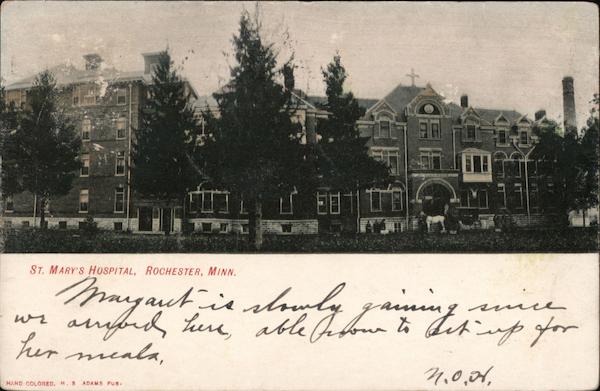 ST. MARY'S HOSPITAL, ROCHESTER, MINN.
Margaret is slowly gaining since
we arrived here, able now to sit up for
her meals.
N.O.N.
HAND COLORED, H. S. ADAMS PUB.